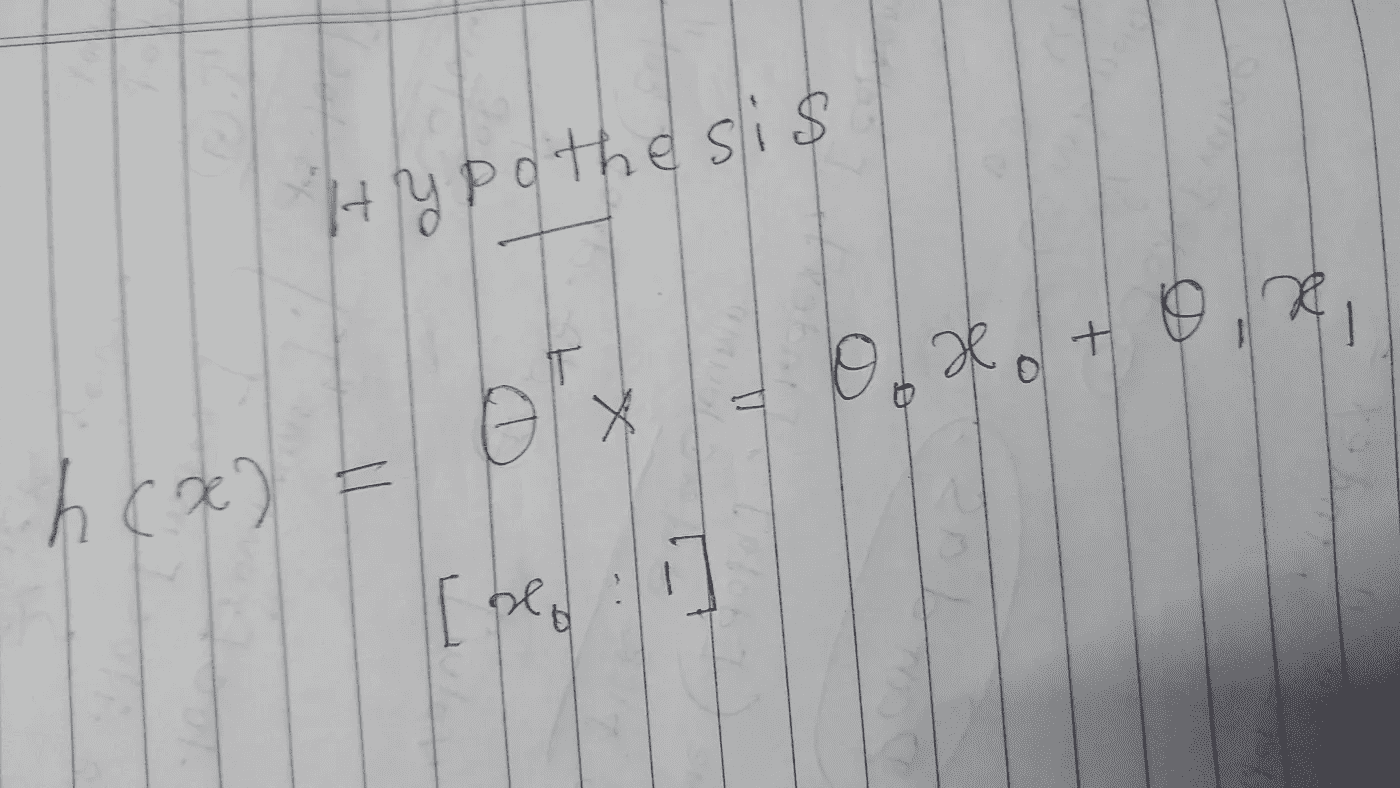 Hypothesis
h(x) = θᵀx = θ₀x₀ + θ₁x₁
[x₀ : 1]